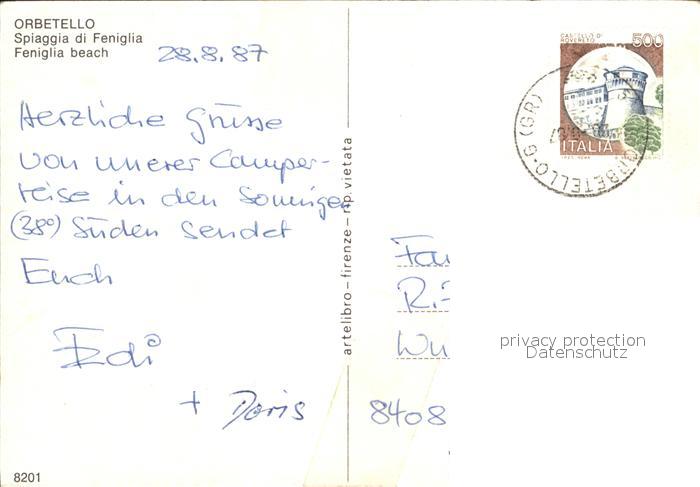 ORBETELLO
Spiaggia di Feniglia
Feniglia beach
28.8.87
Herzliche Grüsse
von unserer Camper-
reise in den Sonnigen
(38°) Süden sendet
Euch
Edi
+ Doris
8201
artelibro - firenze - rip. vietata
CASTELLO DI
ROVERETO
500
ITALIA
ORBETELLO-G (GR)
Fam
8408
privacy protection
Datenschutz